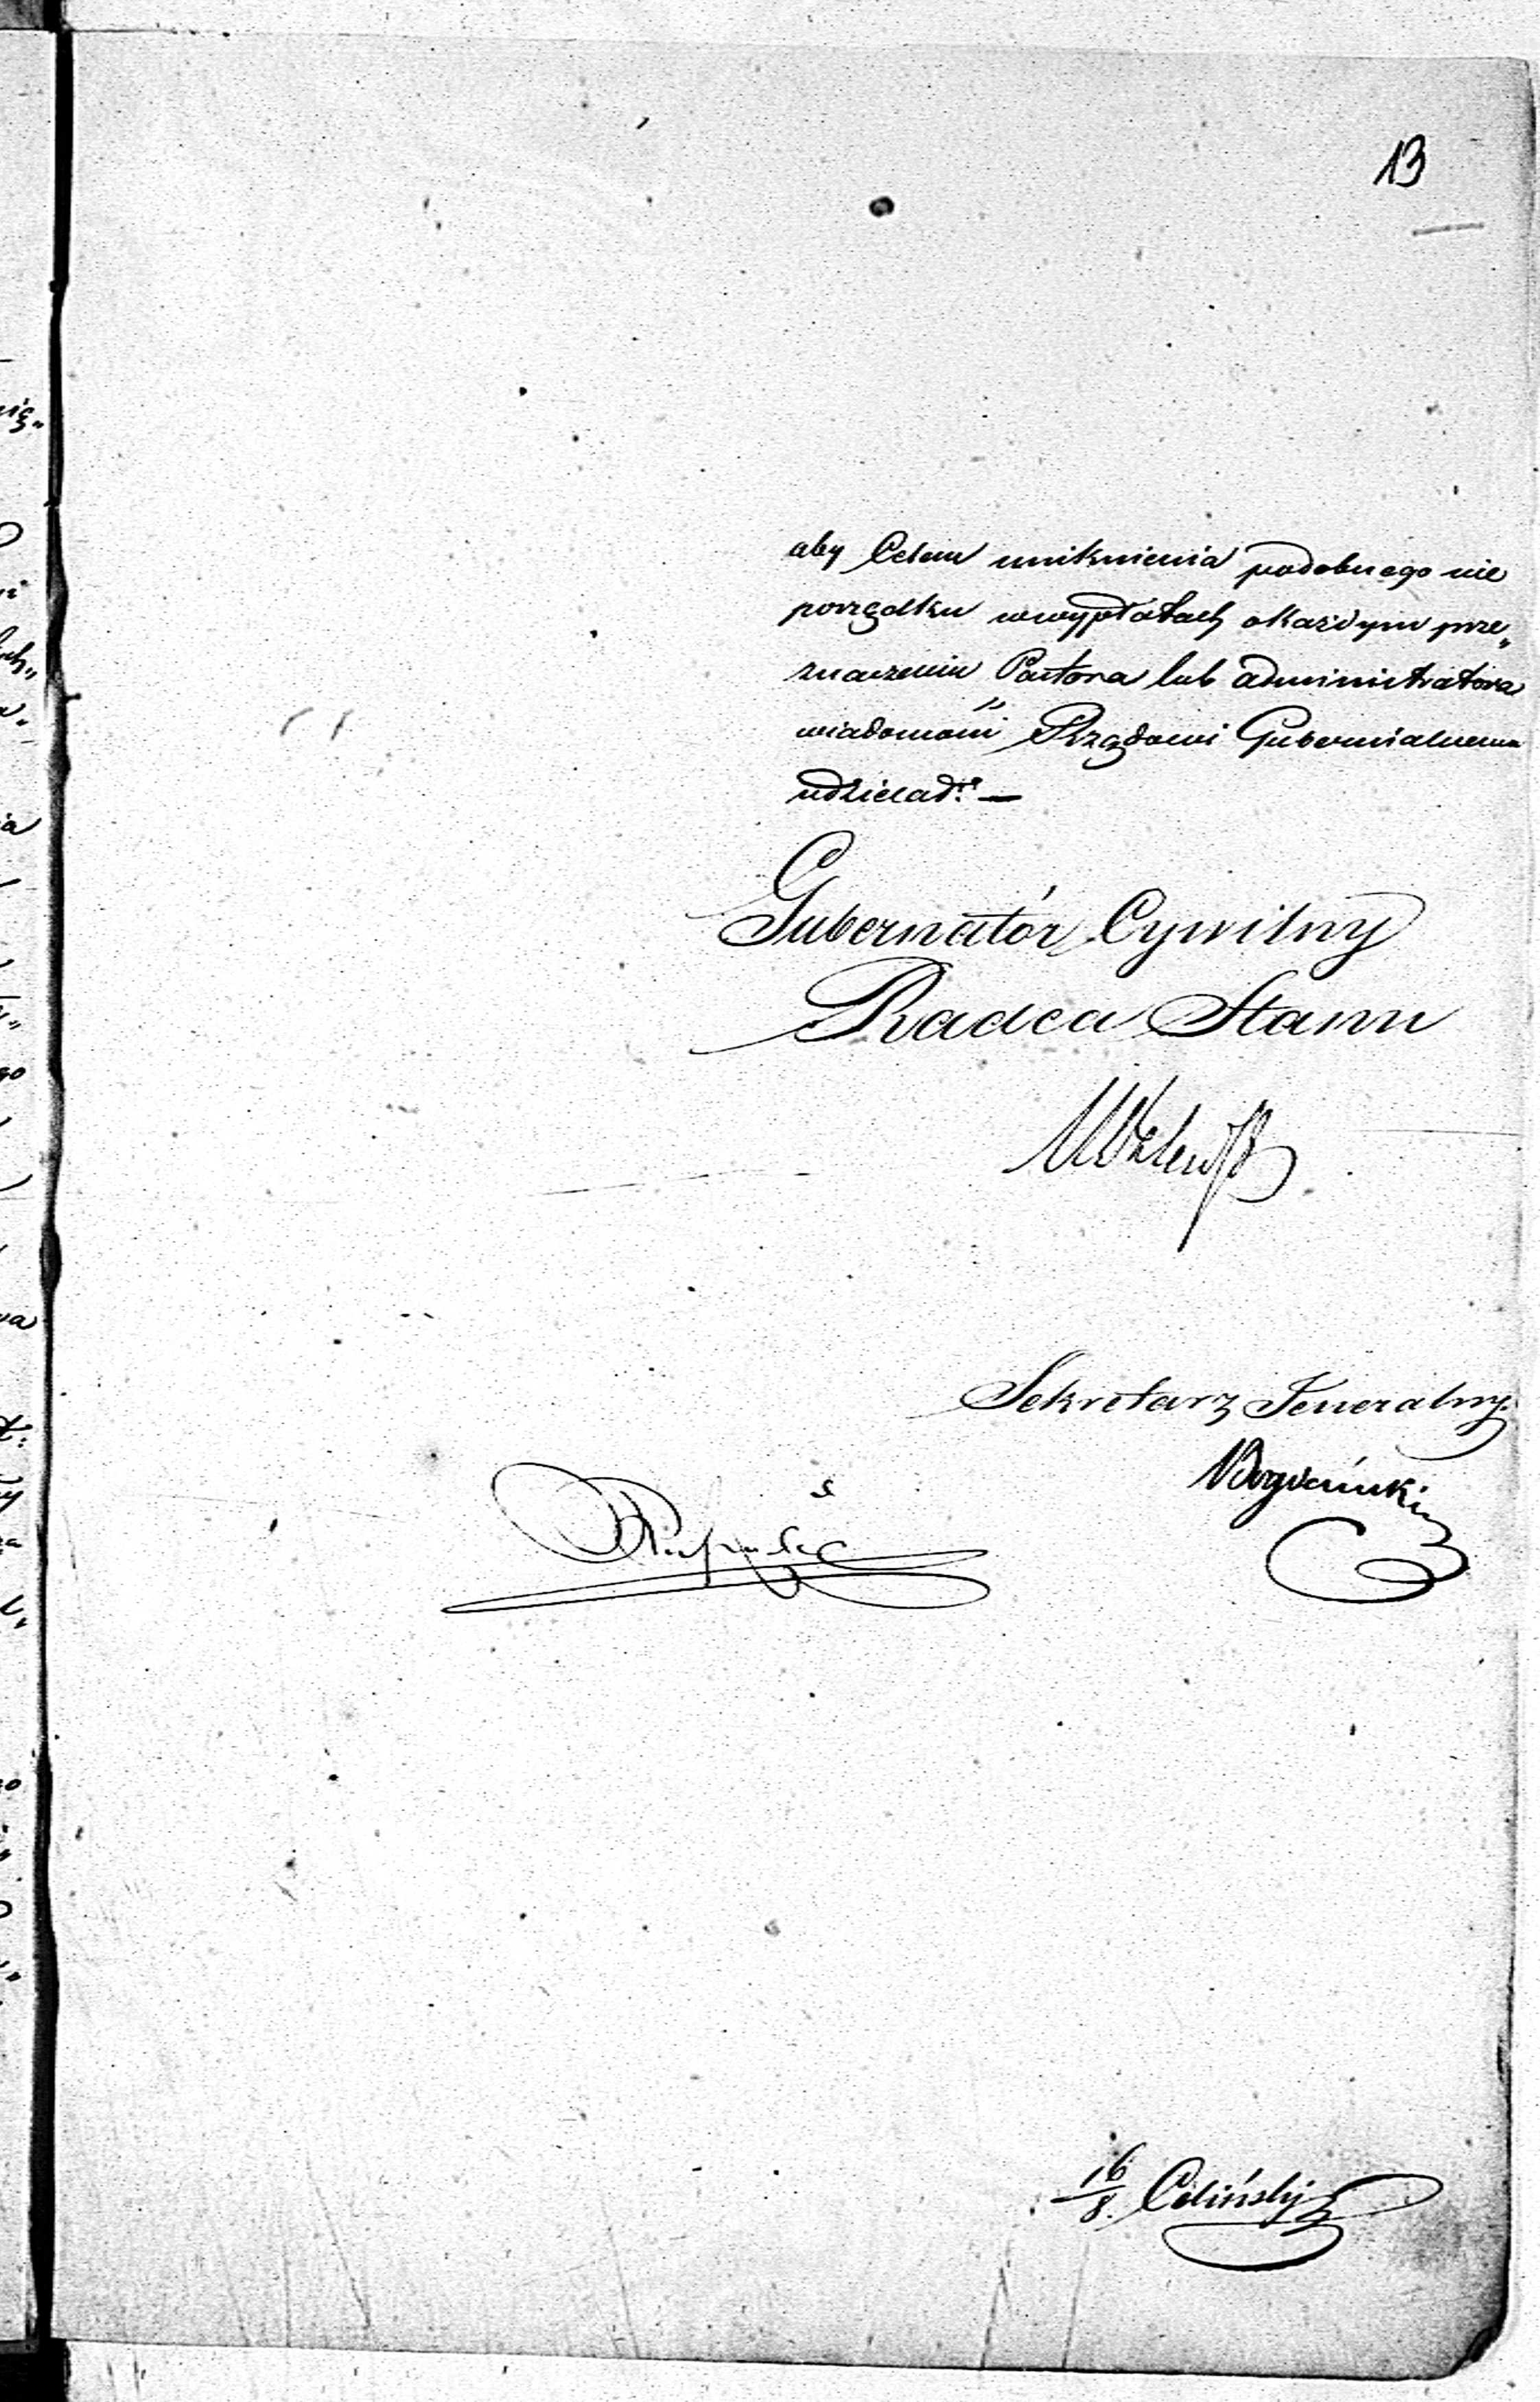 13
aby Celem uniknienia podobnego nie
porządku w wypłatach o każdym prze„
znaczeniu Pastora lub administratora
wiadomości Rządowi Gubernialnemu
udzielał.—
Gubernator Cywilny
Radca Stanu
Sekretarz Jeneralny.
16/8. Celiński